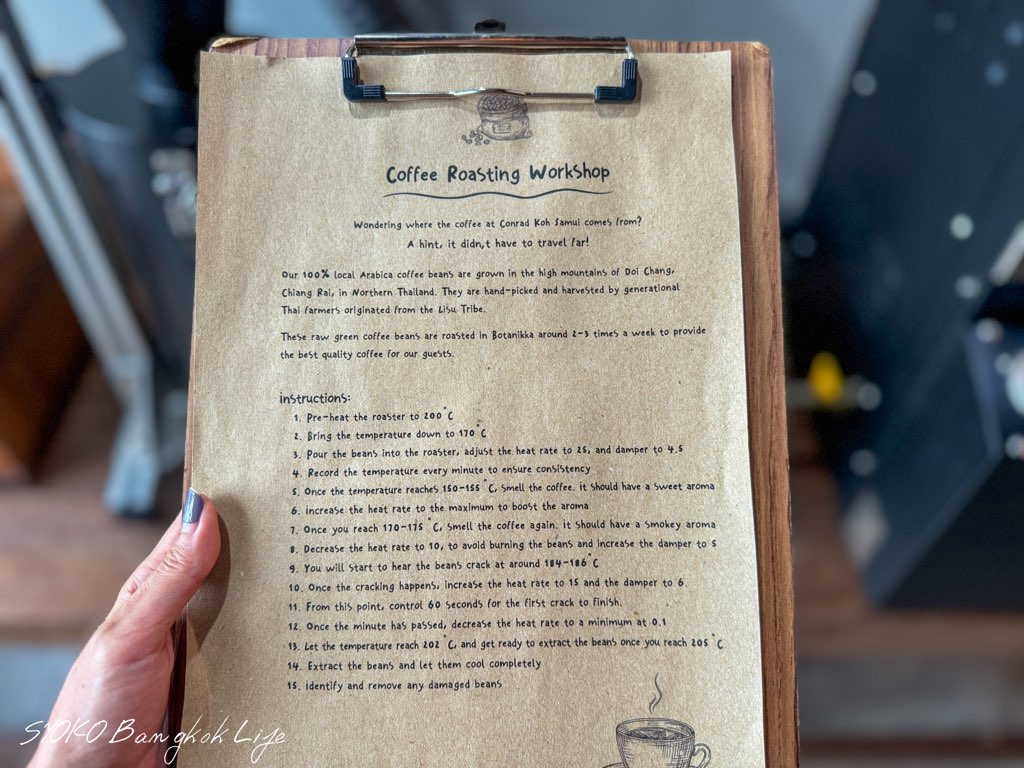 Coffee Roasting Workshop
Wondering where the coffee at Conrad Koh Samui comes from?
A hint, it didn,t have to travel far!
Our 100% local Arabica coffee beans are grown in the high mountains of Doi Chang,
Chiang Rai, in Northern Thailand. They are hand-picked and harvested by generational
Thai farmers originated from the Lisu Tribe.
These raw green coffee beans are roasted in Botanikka around 2-3 times a week to provide
the best quality coffee for our guests.
instructions:
1. Pre-heat the roaster to 200°C
2. Bring the temperature down to 170°C
3. Pour the beans into the roaster, adjust the heat rate to 25, and damper to 4.5
4. Record the temperature every minute to ensure consistency
5. Once the temperature reaches 150-155°C, smell the coffee. it should have a sweet aroma
6. increase the heat rate to the maximum to boost the aroma
7. Once you reach 170-175°C, smell the coffee again. it should have a smokey aroma
8. Decrease the heat rate to 10, to avoid burning the beans and increase the damper to 5
9. You will start to hear the beans crack at around 184-186°C
10. Once the cracking happens, increase the heat rate to 15 and the damper to 6.
11. From this point, control 60 seconds for the first crack to finish.
12. Once the minute has passed, decrease the heat rate to a minimum at 0.1
13. Let the temperature reach 202°C, and get ready to extract the beans once you reach 205°C
14. Extract the beans and let them cool completely
15. identify and remove any damaged beans
SYOKO Bangkok Life